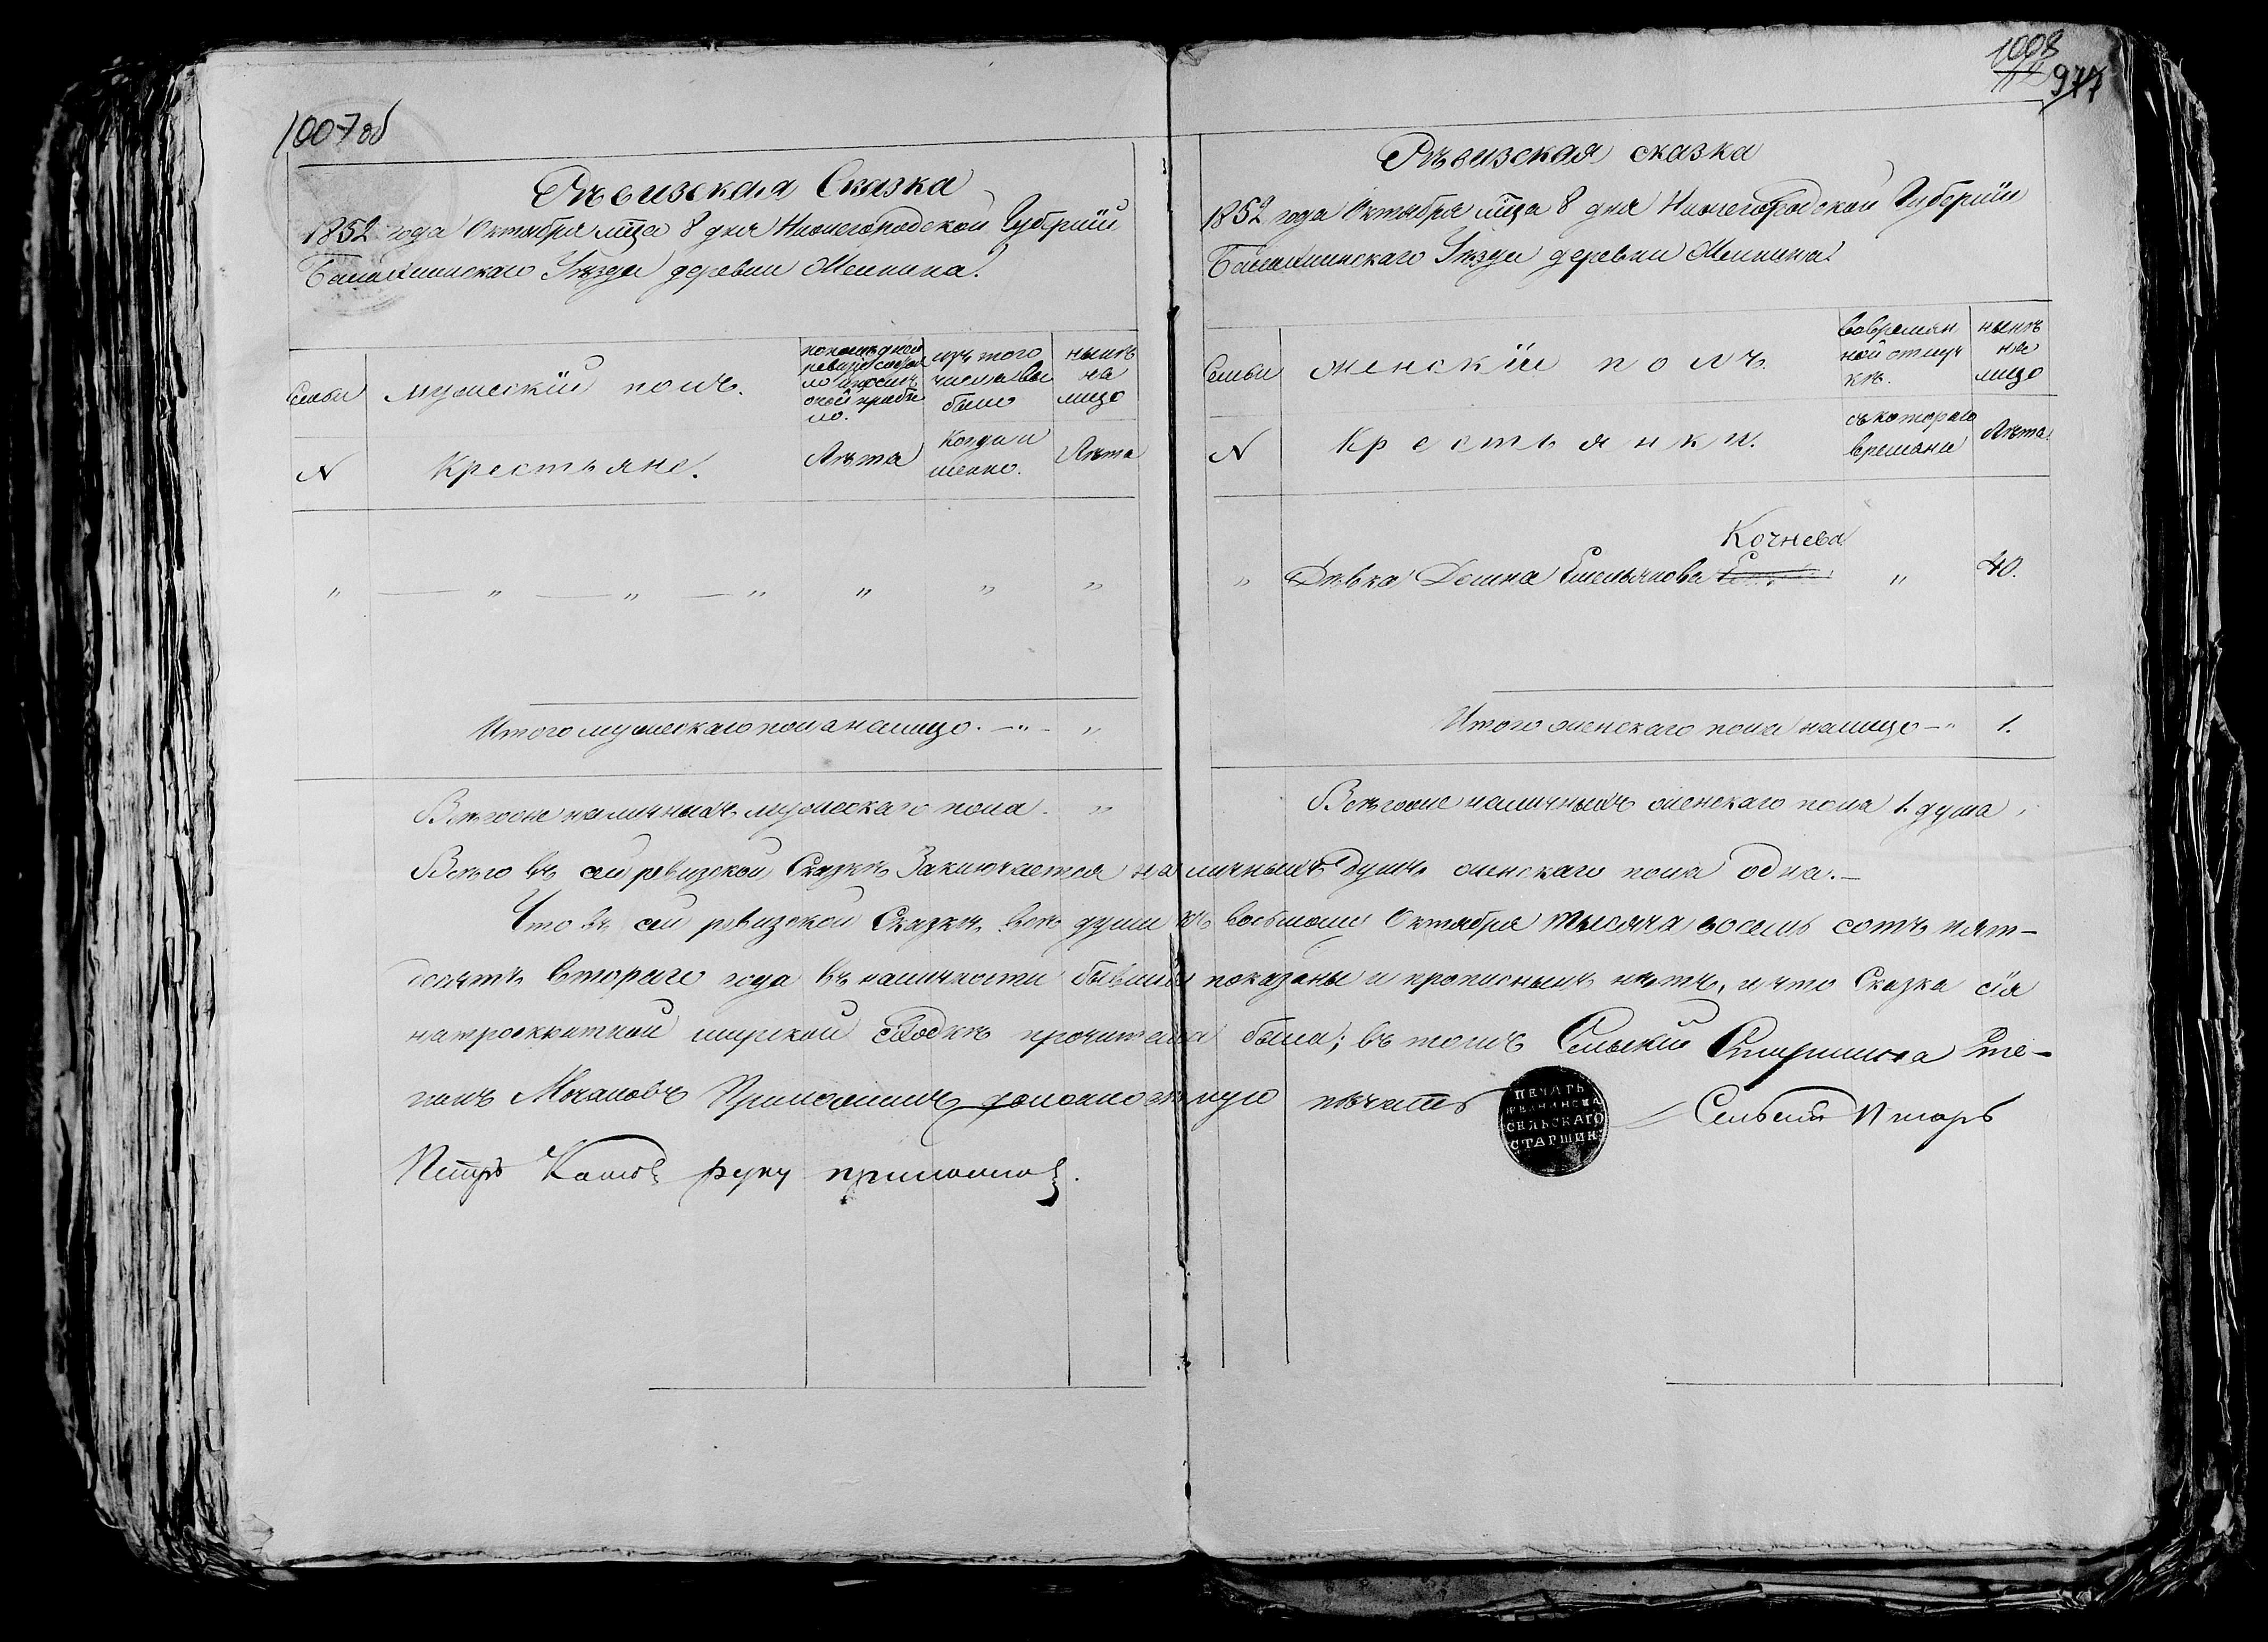 1007 об
Ревизская Сказка
1852 года Октября м҃ца 8 дня Нижегородской Губерніи
Балахнинскаго Уѣзда деревни
Семьи
мужескій полъ.
по последней ревизіи состояло и после оной прибыло.
изъ того числа выбыло
нынѣ на лицо
N
Крестьяне.
Лѣта
Когда и
Лѣта
" — " — " — " " " "
Итого мужескаго пола налицо. — " — "
Всѣхже наличныхъ мужескаго пола. "
1008
977
Ревизская сказка
1852 года Октября м҃ца 8 дня Нижегородской Губерніи
Балахнинскаго Уѣзда деревни
Семьи
женскій полъ.
во времянной отлучкѣ.
нынѣ на лицо
N
Крестьянки.
съ котораго времяни
Лѣта.
Кочнева
" Дѣвка Домна Емельянова " 40.
Итого женскаго пола налицо — " 1.
Всѣхже наличныхъ женскаго пола 1. душа
Всего въ сей ревизской Сказкѣ Заключается наличныхъ душъ женскаго пола одна. —
Что въ сей ревизской Сказкѣ всѣ души къ восьмому Октября тысяча восемь сотъ пять-
десятъ втораго года въ наличности бывшія показаны и прописныхъ нѣтъ, и что Сказка сія
на троекратной мирской сходкѣ прочитана была; въ томъ Сельскій Старшина Сте-
панъ Приложилъ должностную печать
ПЕЧАТЬ
СЕЛЬСКАГО
СТАРШИН
Сельскій Писарь
Петръ руку приложилъ.